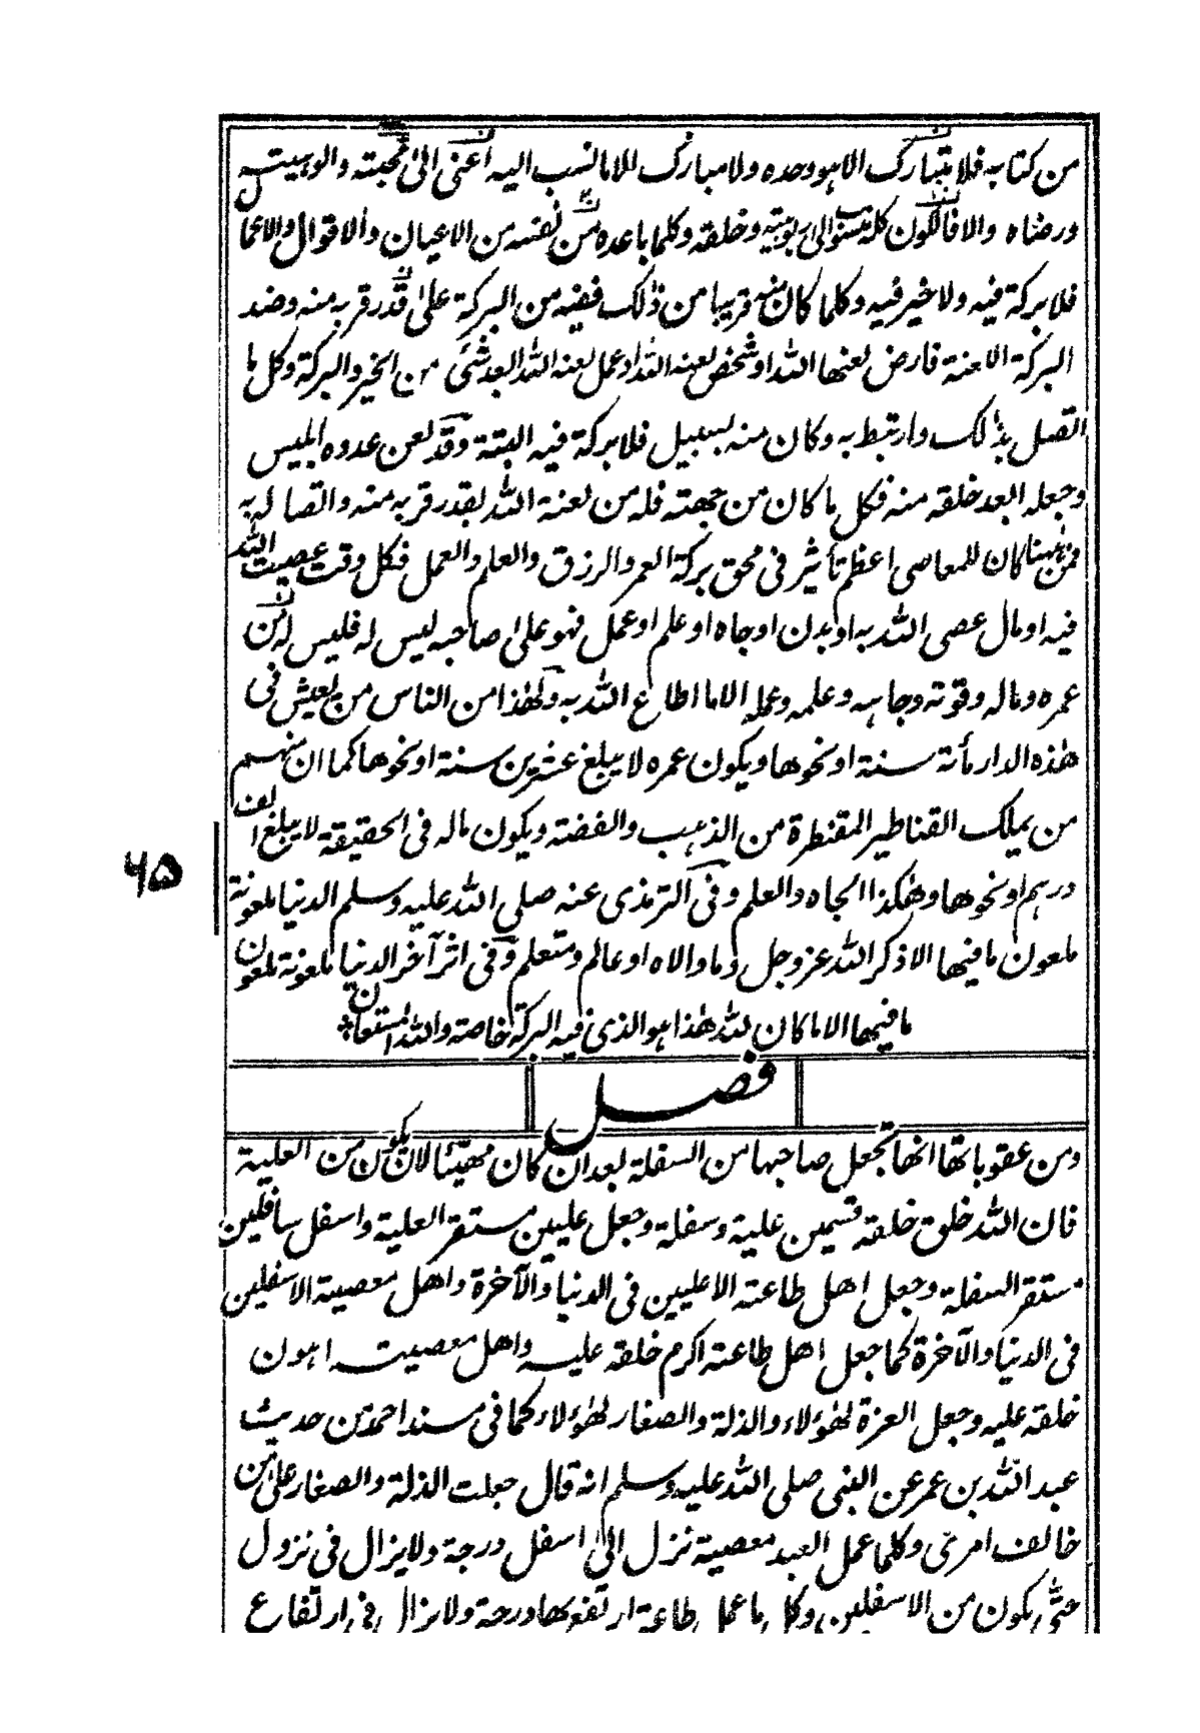 من كتابه فلا متبارك الا هو وحده ولا مبارك الا ما نسب اليه اعنى الى محبته والوهيته
ورضاه والا فالكون كله منسوب الى ربوبيته وخلقه وكلما باعده من نفسه من الاعيان والاقوال والاعمال
فلا بركة فيه ولا خير فيه وكلما كان منه قريبا من ذٰلك ففيه من البركة على قدر قربه منه وضد
البركة اللعنة فارض لعنها الله او شخص لعنه الله او عمل لعنه الله ابعد شئ من الخير والبركة وكل ما
اتصل بذٰلك وارتبط به وكان منه بسبيل فلا بركة فيه البتة وقد لعن عدوه ابليس
وجعله ابعد خلقه منه فكل ما كان من جهته فله من لعنة الله بقدر قربه منه واتصاله به
فمن ههنا كان للمعاصى اعظم تأثير فى محق بركة العمر والرزق والعلم والعمل فكل وقت عصيت الله
فيه او مال عصى الله به او بدن او جاه او علم او عمل فهو على صاحبه ليس له فليس له من
عمره وماله وقوته وجاهه وعلمه وعمله الا ما اطاع الله به ولهٰذا من الناس من يعيش فى
هٰذه الدار مأئة سنة او نحوها ويكون عمره لا يبلغ عشرين سنة او نحوها كما ان منهم
من يملك القناطير المقنطرة من الذهب والفضة ويكون ماله فى الحقيقة لا يبلغ الف
درهم او نحوها وهٰكذا الجاه والعلم وفى الترمذى عنه صلى الله عليه وسلم الدنيا ملعونة
ملعون ما فيها الا ذكر الله عز وجل وما والاه او عالم ومتعلم وفى اثر آخر الدنيا ملعونة ملعون
ما فيها الا ما كان لله هٰذا هو الذى فيه البركة خاصة والله المستعان
٦٥
فصل
ومن عقوباتها انها تجعل صاحبها من السفلة بعد ان كان مهيئا لان يكون من العلية
فان الله خلق خلقه قسمين علية وسفلة وجعل عليين مستقر العلية واسفل سافلين
مستقر السفلة وجعل اهل طاعته الاعليين فى الدنيا والآخرة واهل معصيته الاسفلين
فى الدنيا والآخرة كما جعل اهل طاعته اكرم خلقه عليه واهل معصيته اهون
خلقه عليه وجعل العزة لهٰؤلاء والذلة والصغار لهٰؤلاء كما فى مسند احمد من حديث
عبد الله بن عمر عن النبى صلى الله عليه وسلم انه قال جعلت الذلة والصغار على من
خالف امرى وكلما عمل العبد معصية نزل الى اسفل درجة ولا يزال فى نزول
حتى يكون من الاسفلين وكل ما عمل طاعة ارتفع بها درجة ولا يزال فى ارتفاع